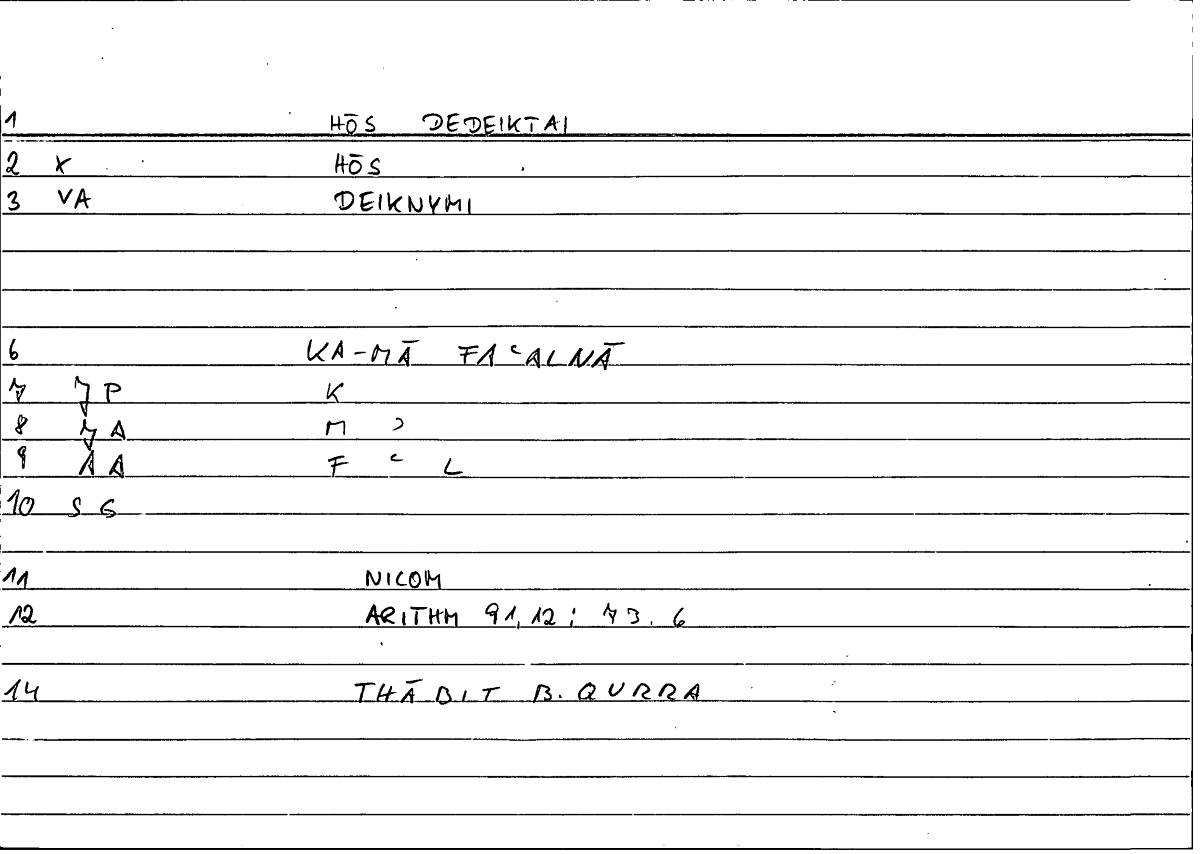 1 HŌS DEDEIKTAI
2 X HŌS
3 VA DEIKNYMI
6 KA-MĀ FAʿALNĀ
7 JP K
8 JA M ʾ
9 AA F ʿ L
10 SG
11 NICOM
12 ARITHM 91,12 ; 73.6
14 THĀBIT B. QURRA